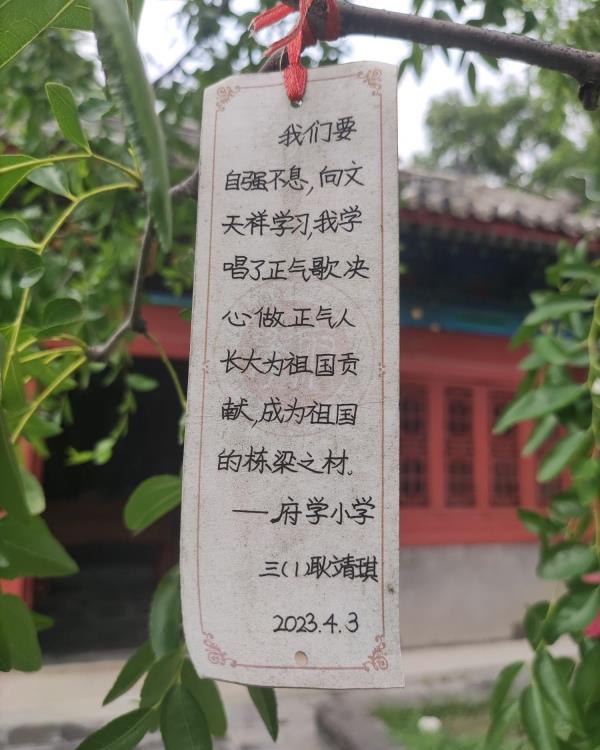 我们要
自强不息,向文
天祥学习,我学
唱了正气歌,决
心做正气人
长大为祖国贡
献,成为祖国
的栋梁之材。
——府学小学
三(1)耿靖琪
2023.4.3